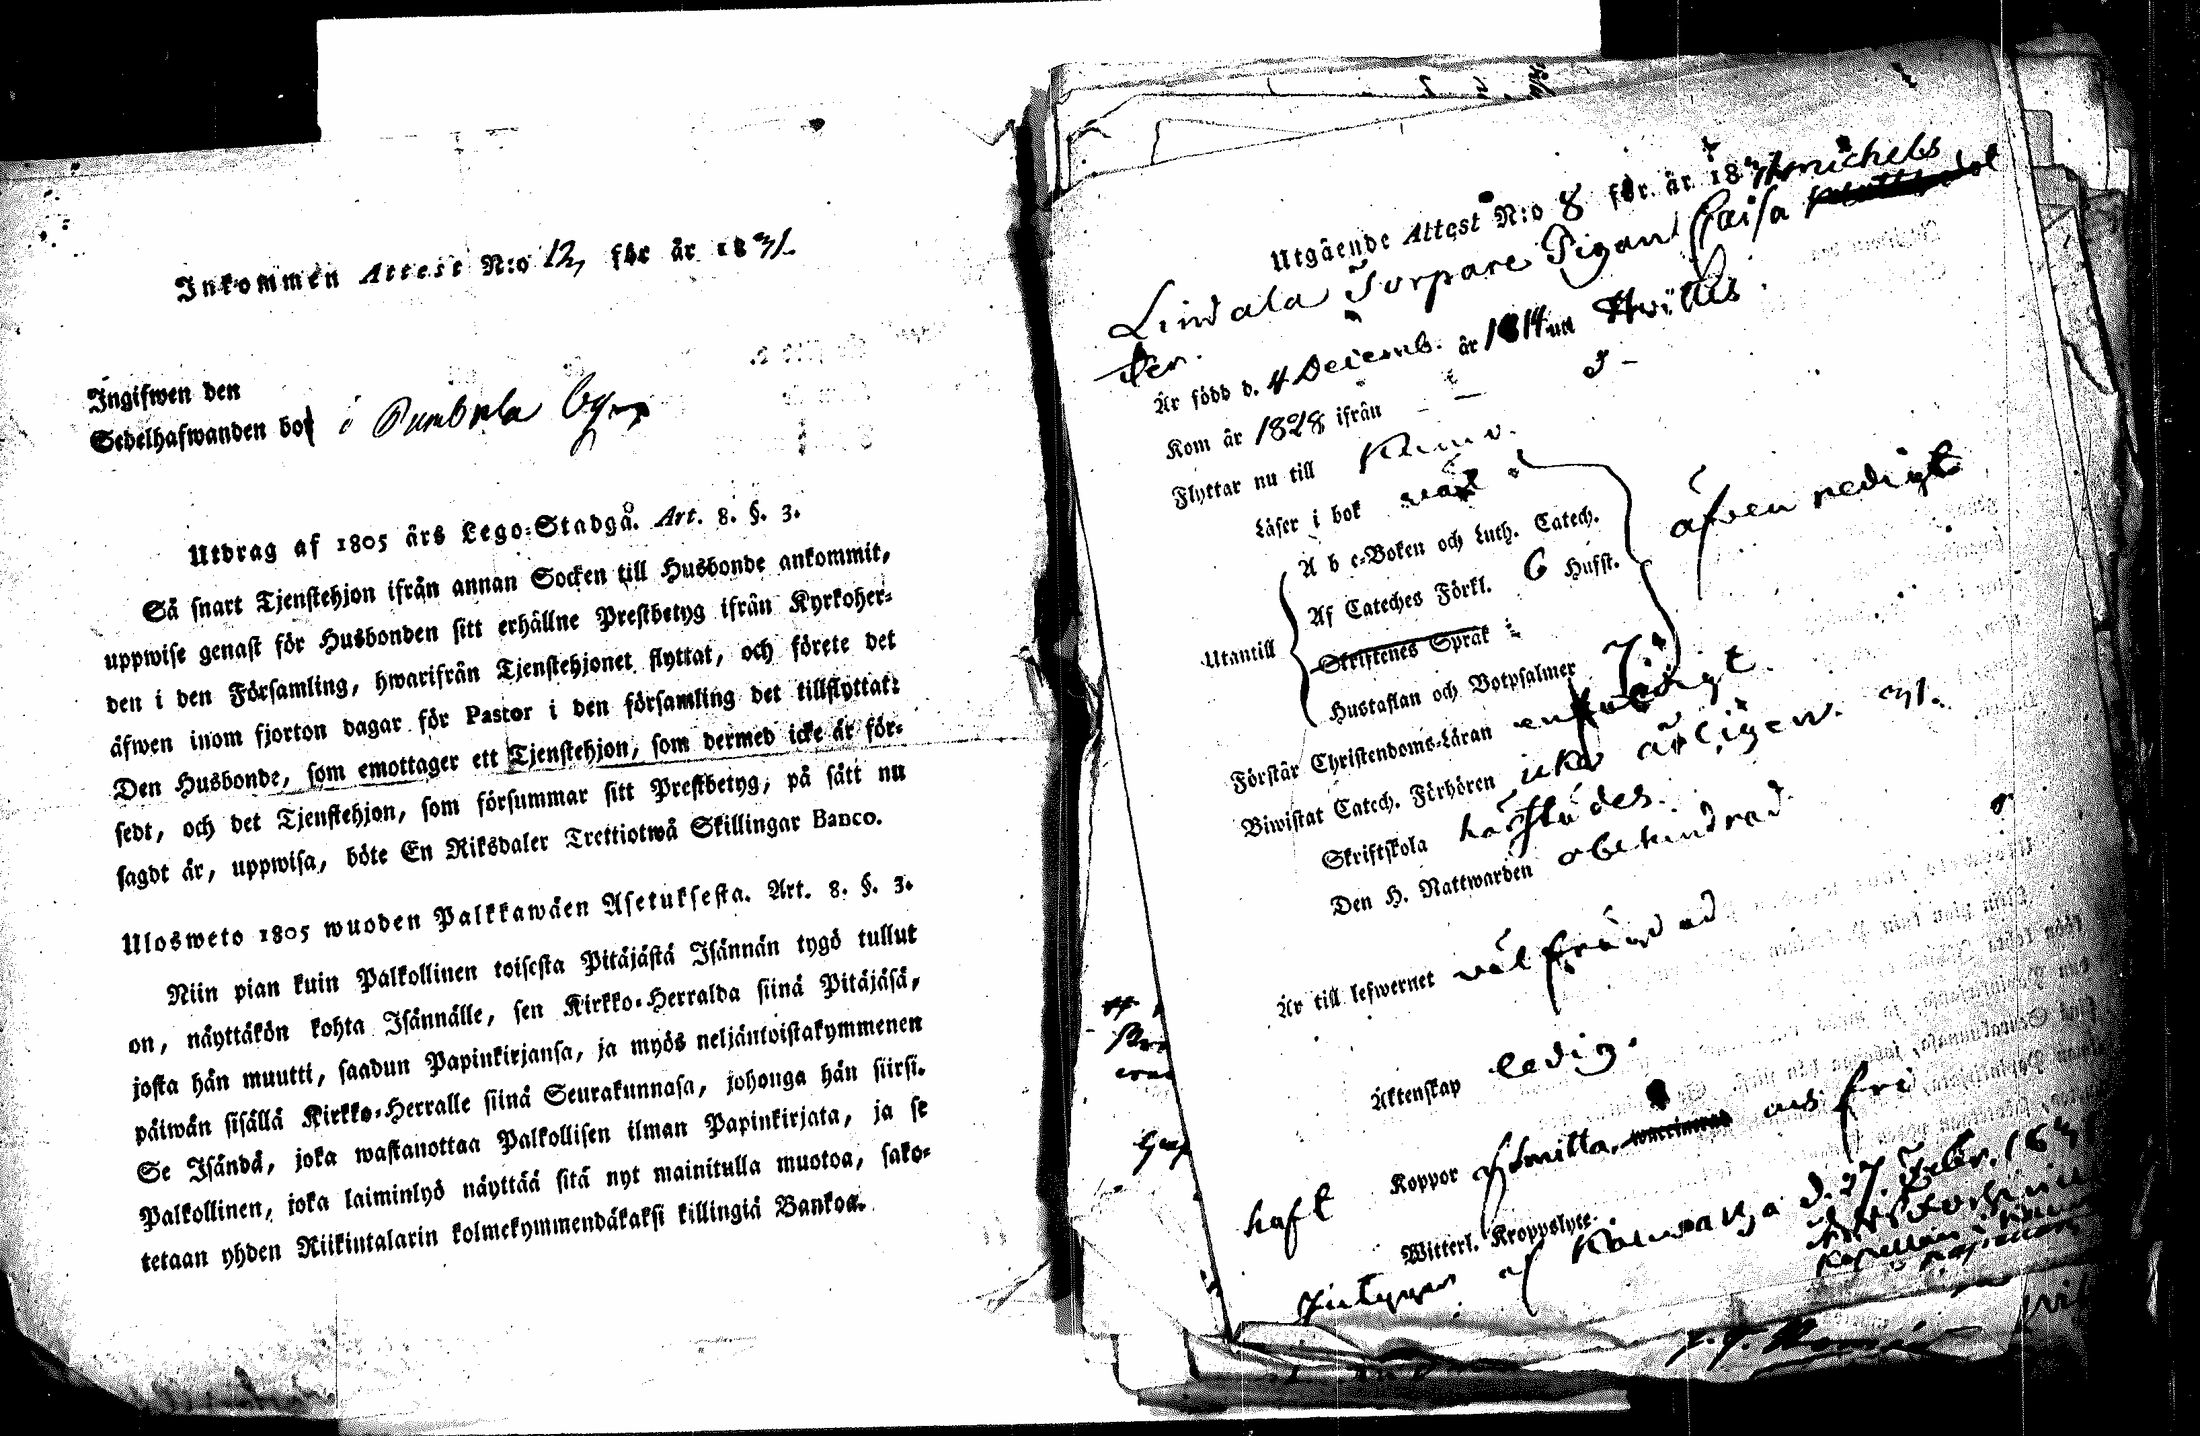 Inkommen Attest N:o 12, för år 1831.
Ingifwen den
Sedelhafwanden bor i Pumbola by
Utdrag af 1805 års Lego-Stadgå. Art. 8. §. 3.
Så snart Tjenstehjon ifrån annan Socken till Husbonde ankommit,
uppwise genast för Husbonden sitt erhållne Prestbetyg ifrån Kyrkoher-
den i den Församling, hwarifrån Tjenstehjonet flyttat, och förete det
äfwen inom fjorton dagar för Pastor i den församling det tillflyttat:
Den Husbonde, som emottager ett Tjenstehjon, som dermed icke är för-
sedt, och det Tjenstehjon, som försummar sitt Prestbetyg, på sätt nu
sagdt är, uppwisa, böte En Riksdaler Trettiotwå Skillingar Banco.
Ulosweto 1805 wuoden Palkkawäen Asetuksesta. Art. 8. §. 3.
Niin pian kuin Palkollinen toisesta Pitäjästä Isännän tygö tullut
on, näyttäkön kohta Isännälle, sen Kirkko-Herralda siinä Pitäjäsä,
josta hän muutti, saadun Papinkirjansa, ja myös neljäntoistakymmenen
päiwän sisällä Kirkko-Herralle siinä Seurakunnasa, johonga hän siirsi.
Se Isändä, joka wastanottaa Palkollisen ilman Papinkirjata, ja se
Palkollinen, joka laiminlyö näyttää sitä nyt mainitulla muotoa, sako-
tetaan yhden Riikintalarin kolmekymmendäkaksi killingiä Bankoa.
Utgående Attest N:o 8 för år 1831 Michels
Lindala Torpare Pigan Caisa
dter.
Är född d. 4 Decemb. år 1814 uti Hwittis
Kom år 1828 ifrån
Flyttar nu till
Läser i bok
A b c-Boken och Luth. Catech.
äfven redigt
Utantill Af Cateches Förkl. 6 Hufst.
Skriftenes Språk
Hustaflan och Botpsalmer 7
Förstår Christendoms-Läran enfaldigt.
Biwistat Catech. Förhören icke årligen. 31.
Skriftskola härstädes.
Den H. Nattwarden obehindrad
Är till lefwernet välfräjdad
Äktenskap ledig.
haft Koppor och fri
Witterl. Kroppslyte.
Intygar af d. 27. Febr. 1831
Kapellan